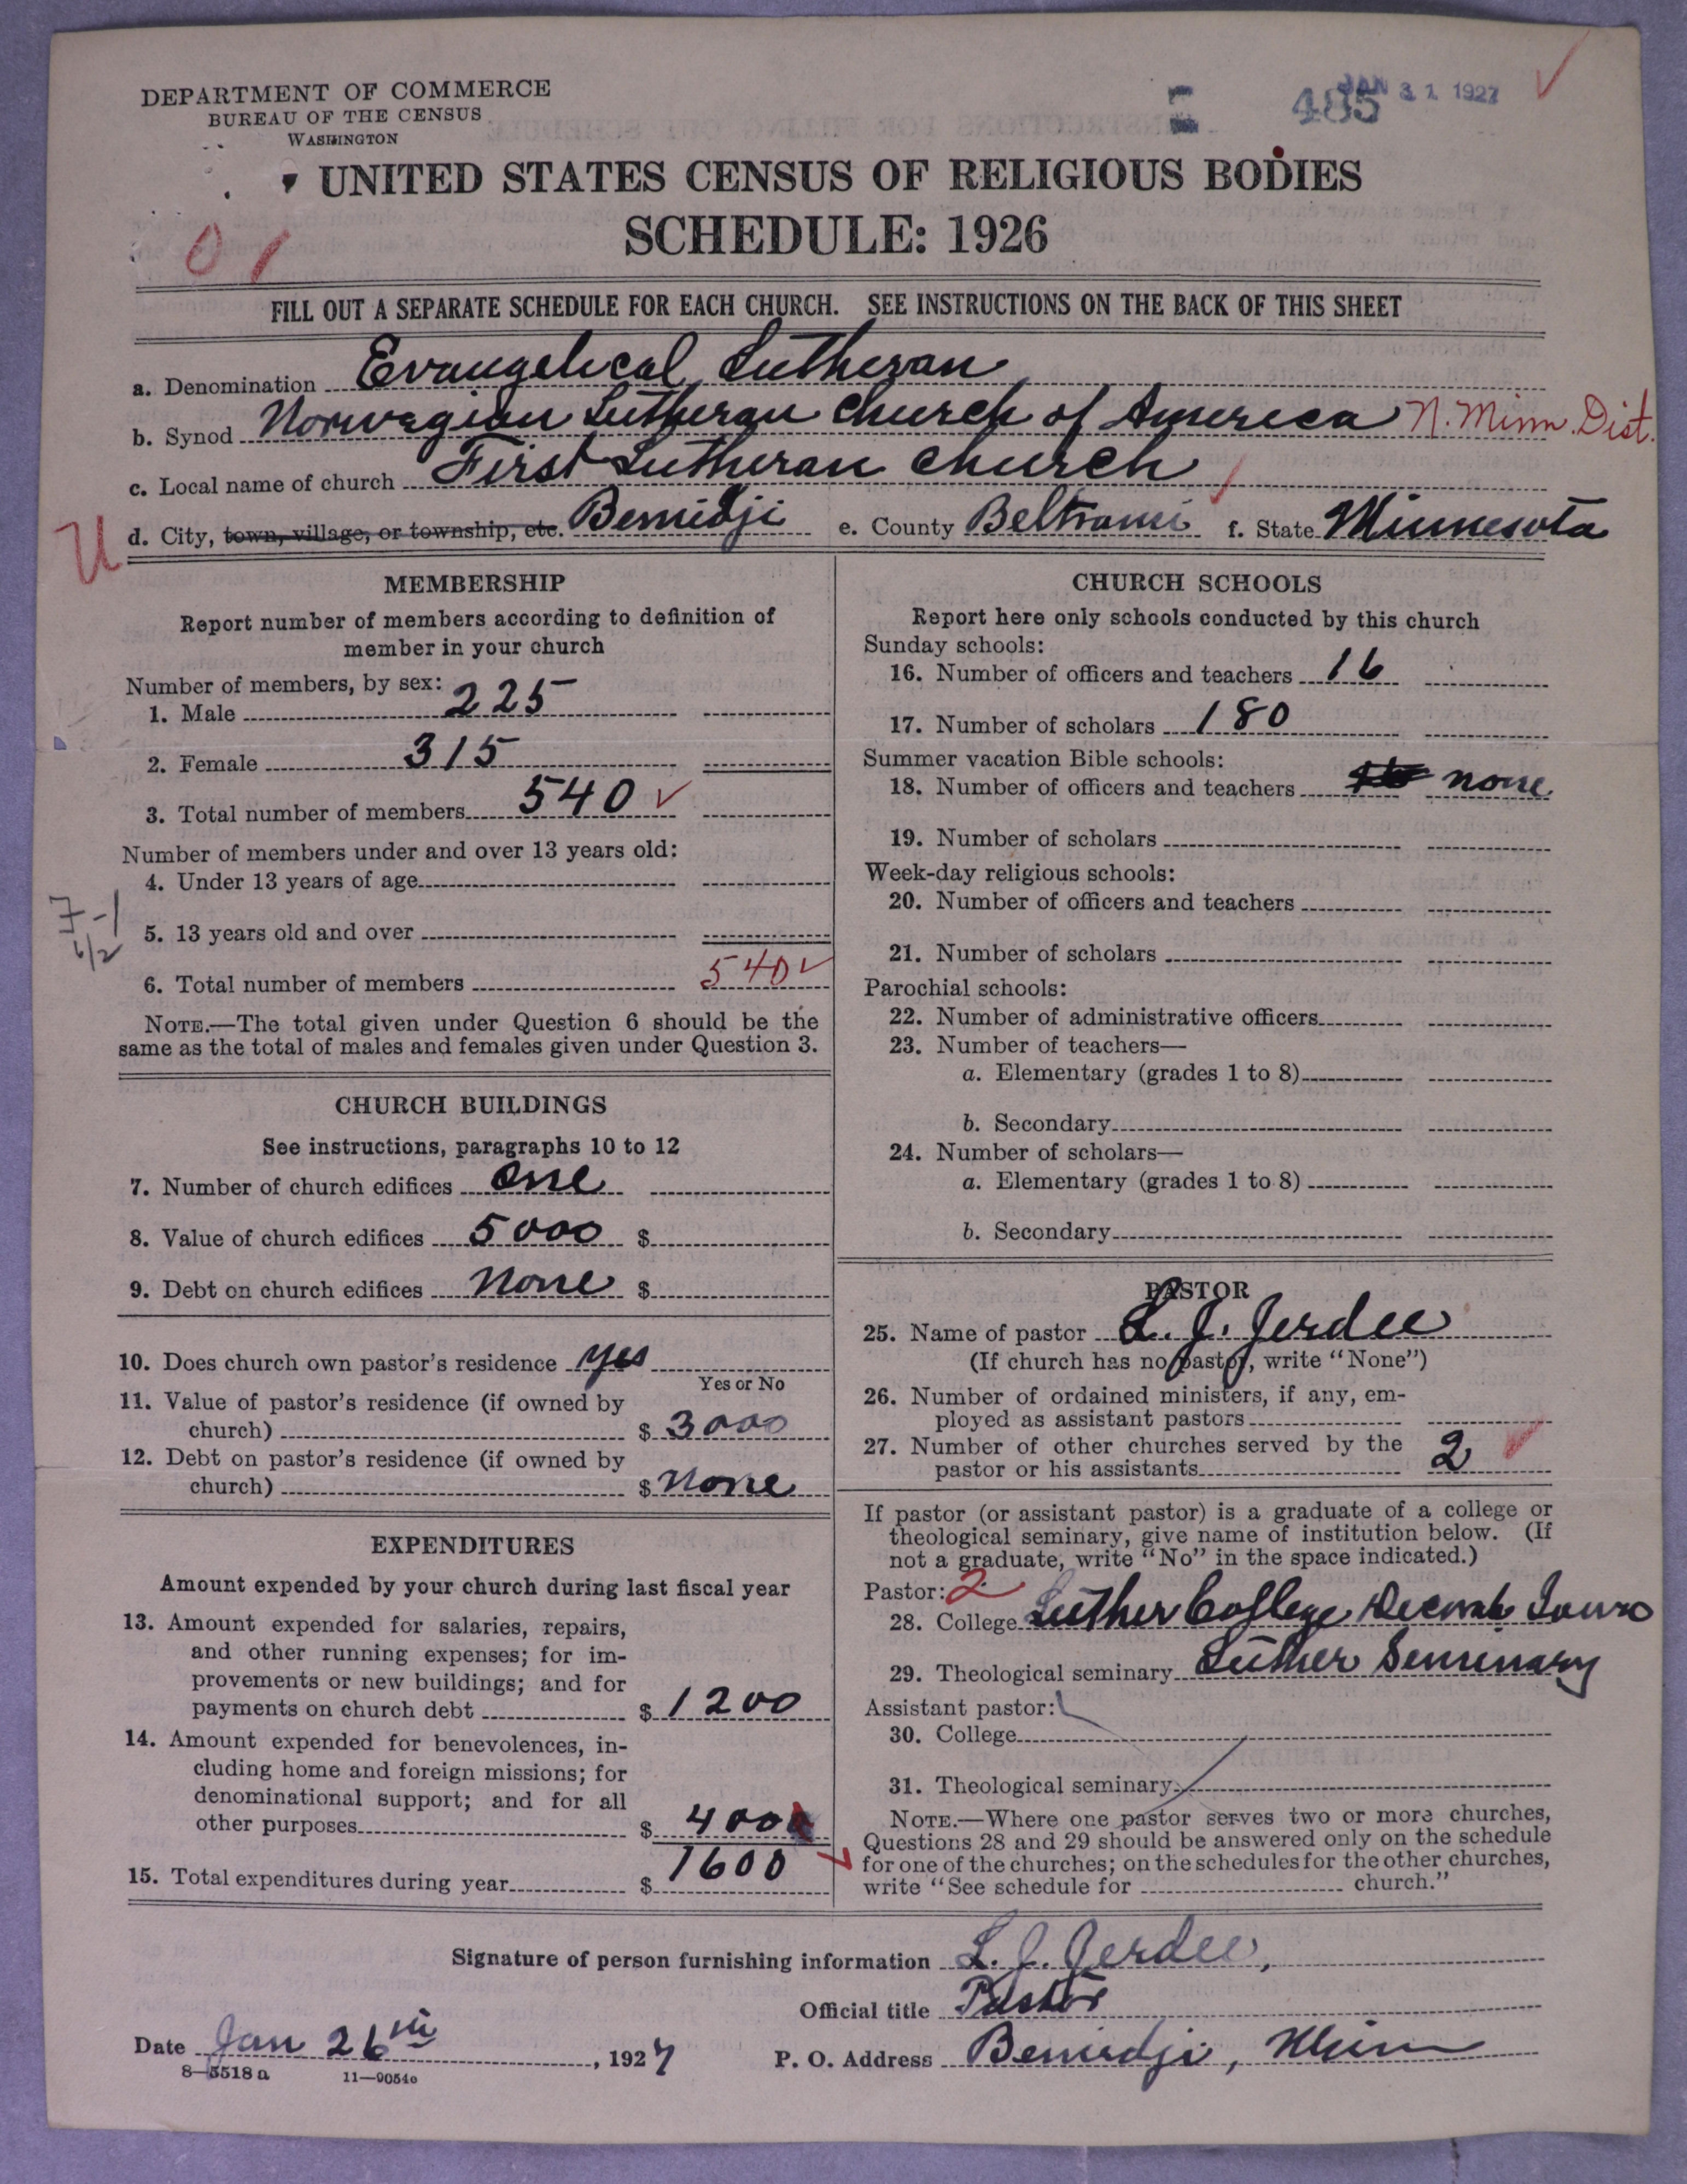 DEPARTMENT OF COMMERCE
BUREAU OF THE CENSUS
WASHINGTON
485
JAN 31 1927
UNITED STATES CENSUS OF RELIGIOUS BODIES
SCHEDULE: 1926
0 1
FILL OUT A SEPARATE SCHEDULE FOR EACH CHURCH. SEE INSTRUCTIONS ON THE BACK OF THIS SHEET
a. Denomination Evangelical Lutheran
b. Synod Norwegian Lutheran Church of America N. Minn. Dist.
c. Local name of church First Lutheran Church
U d. City, town, village, or township, etc. Bemidji e. County Beltrami f. State Minnesota
MEMBERSHIP
Report number of members according to definition of
member in your church
Number of members, by sex:
1. Male 225
2. Female 315
3. Total number of members 540 ✓
Number of members under and over 13 years old:
4. Under 13 years of age
5. 13 years old and over
6. Total number of members 540 ✓
NOTE.—The total given under Question 6 should be the
same as the total of males and females given under Question 3.
CHURCH BUILDINGS
See instructions, paragraphs 10 to 12
7. Number of church edifices One
8. Value of church edifices 5000 $
9. Debt on church edifices None $
10. Does church own pastor's residence yes
Yes or No
11. Value of pastor's residence (if owned by
church) $ 3000
12. Debt on pastor's residence (if owned by
church) $ None
EXPENDITURES
Amount expended by your church during last fiscal year
13. Amount expended for salaries, repairs,
and other running expenses; for im-
provements or new buildings; and for
payments on church debt $ 1200
14. Amount expended for benevolences, in-
cluding home and foreign missions; for
denominational support; and for all
other purposes $ 400
15. Total expenditures during year $ 1600
CHURCH SCHOOLS
Report here only schools conducted by this church
Sunday schools:
16. Number of officers and teachers 16
17. Number of scholars 180
Summer vacation Bible schools:
18. Number of officers and teachers none
19. Number of scholars
Week-day religious schools:
20. Number of officers and teachers
21. Number of scholars
Parochial schools:
22. Number of administrative officers
23. Number of teachers—
a. Elementary (grades 1 to 8)
b. Secondary
24. Number of scholars—
a. Elementary (grades 1 to 8)
b. Secondary
PASTOR
25. Name of pastor L. J. Jerdee
(If church has no pastor, write "None")
26. Number of ordained ministers, if any, em-
ployed as assistant pastors
27. Number of other churches served by the
pastor or his assistants 2 ✓
If pastor (or assistant pastor) is a graduate of a college or
theological seminary, give name of institution below. (If
not a graduate, write "No" in the space indicated.)
Pastor: 2
28. College Luther College Decorah Iowa
29. Theological seminary Luther Seminary
Assistant pastor:
30. College
31. Theological seminary
NOTE.—Where one pastor serves two or more churches,
Questions 28 and 29 should be answered only on the schedule
for one of the churches; on the schedules for the other churches,
write "See schedule for church."
Signature of person furnishing information L. J. Jerdee,
Official title Pastor
Date Jan 26th, 1927 P. O. Address Bemidji, Minn
8—5518 a 11—9054c